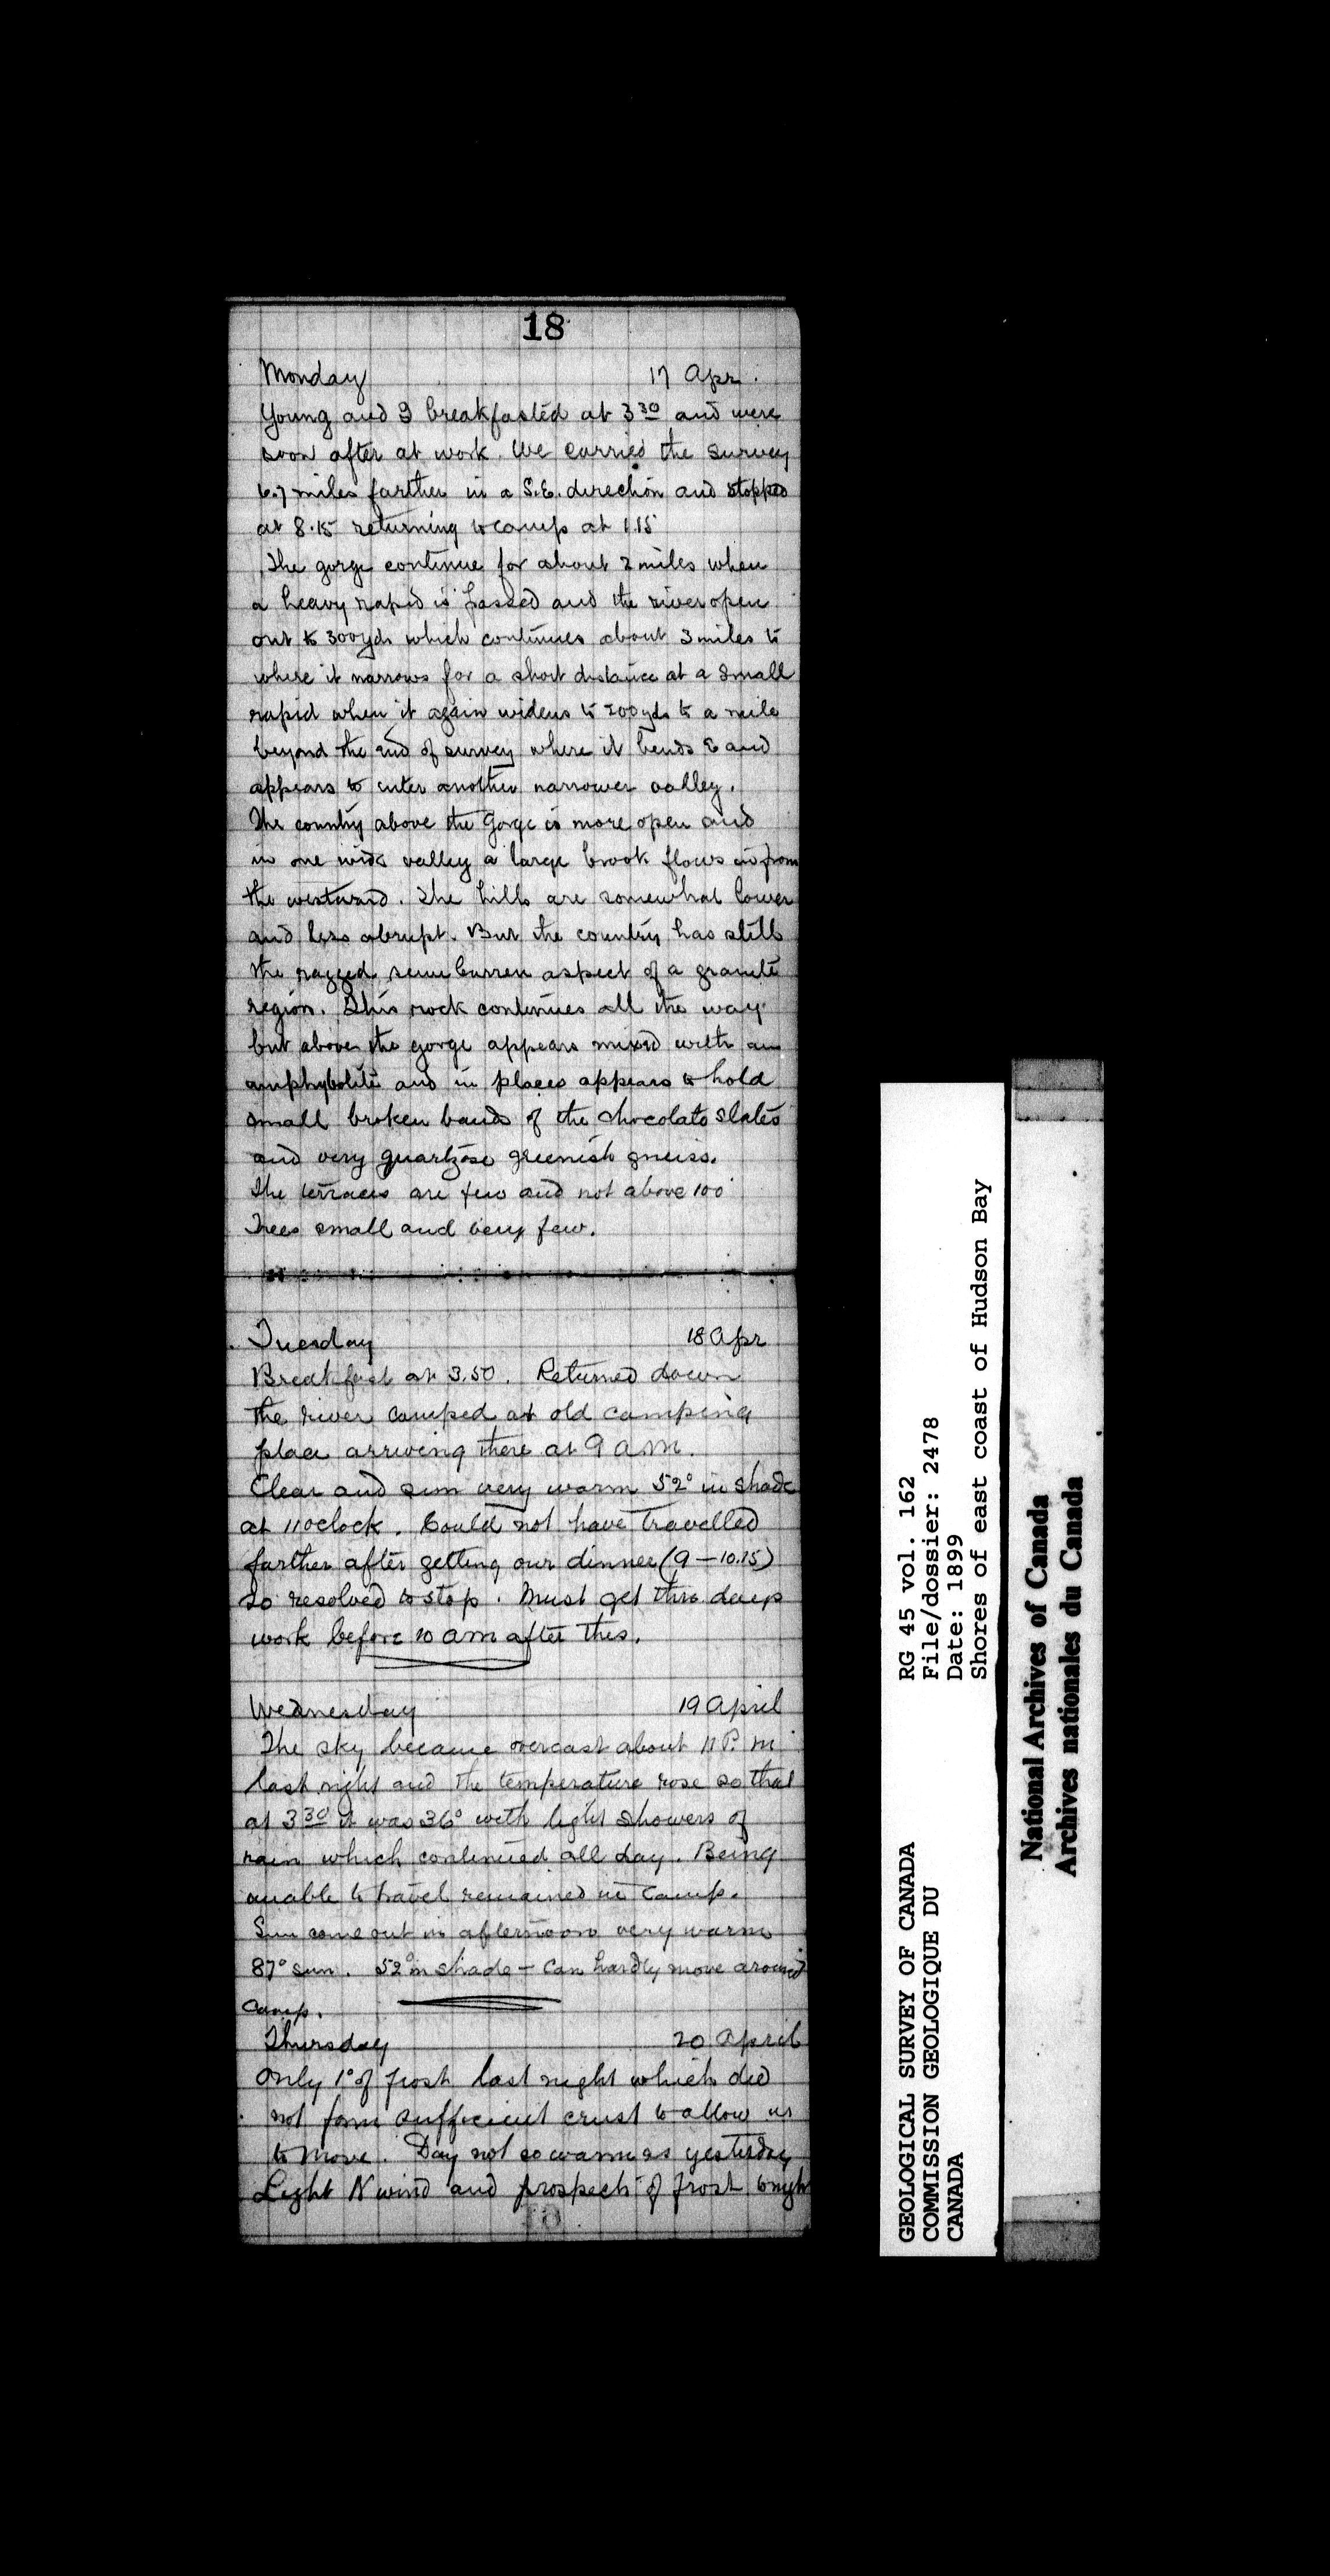 18
Monday 17 Apr.
Young and I breakfasted at 3 30 and were
soon after at work. We carried the survey
6.7 miles farther in a S.E. direction and stopped
at 8.15 returning to camp at 1.15
The gorge continue for about 2 miles when
a heavy rapid is passed and the river open
out to 300 yds which continues about 3 miles to
where it narrows for a short distance at a small
rapid when it again widens to 200 yds to a mile
beyond the end of survey where it bends E and
appears to enter another narrower valley.
The country above the Gorge is more open and
in one wide valley a large brook flows in from
the westward. The hills are somewhat lower
and less abrupt. But the country has still
the ragged semi barren aspect of a granite
region. This rock continues all the way
but above the gorge appears mixed with an
amphybolite and in places appears to hold
small broken bands of the chocolate slates
and very quartzose greenish gneiss.
The terraces are few and not above 100'
Trees small and very few.
Tuesday 18 Apr
Breakfast at 3.50. Returned down
the river camped at old camping
place arriving there at 9 a.m.
Clear and sun very warm 52° in shade
at 11 oclock. Could not have travelled
farther after getting our dinner (9 — 10.15)
so resolved to stop. Must get thro days
work before 10 am after this.
Wednesday 19 April
The sky became overcast about 11 P.m
last night and the temperature rose so that
at 3 30 it was 36° with light showers of
rain which continued all day. Being
unable to travel remained in camp.
Sun came out in afternoon very warm
87° sun. 52° in shade — Can hardly move around
camp.
Thursday 20 April
Only 1° of frost last night which did
not form sufficient crust to allow us
to move. Day not so warm as yesterday
Light N wind and prospects of frost tonight
GEOLOGICAL SURVEY OF CANADA
COMMISSION GEOLOGIQUE DU
CANADA
RG 45 vol. 162
File/dossier: 2478
Date: 1899
Shores of east coast of Hudson Bay
National Archives of Canada
Archives nationales du Canada